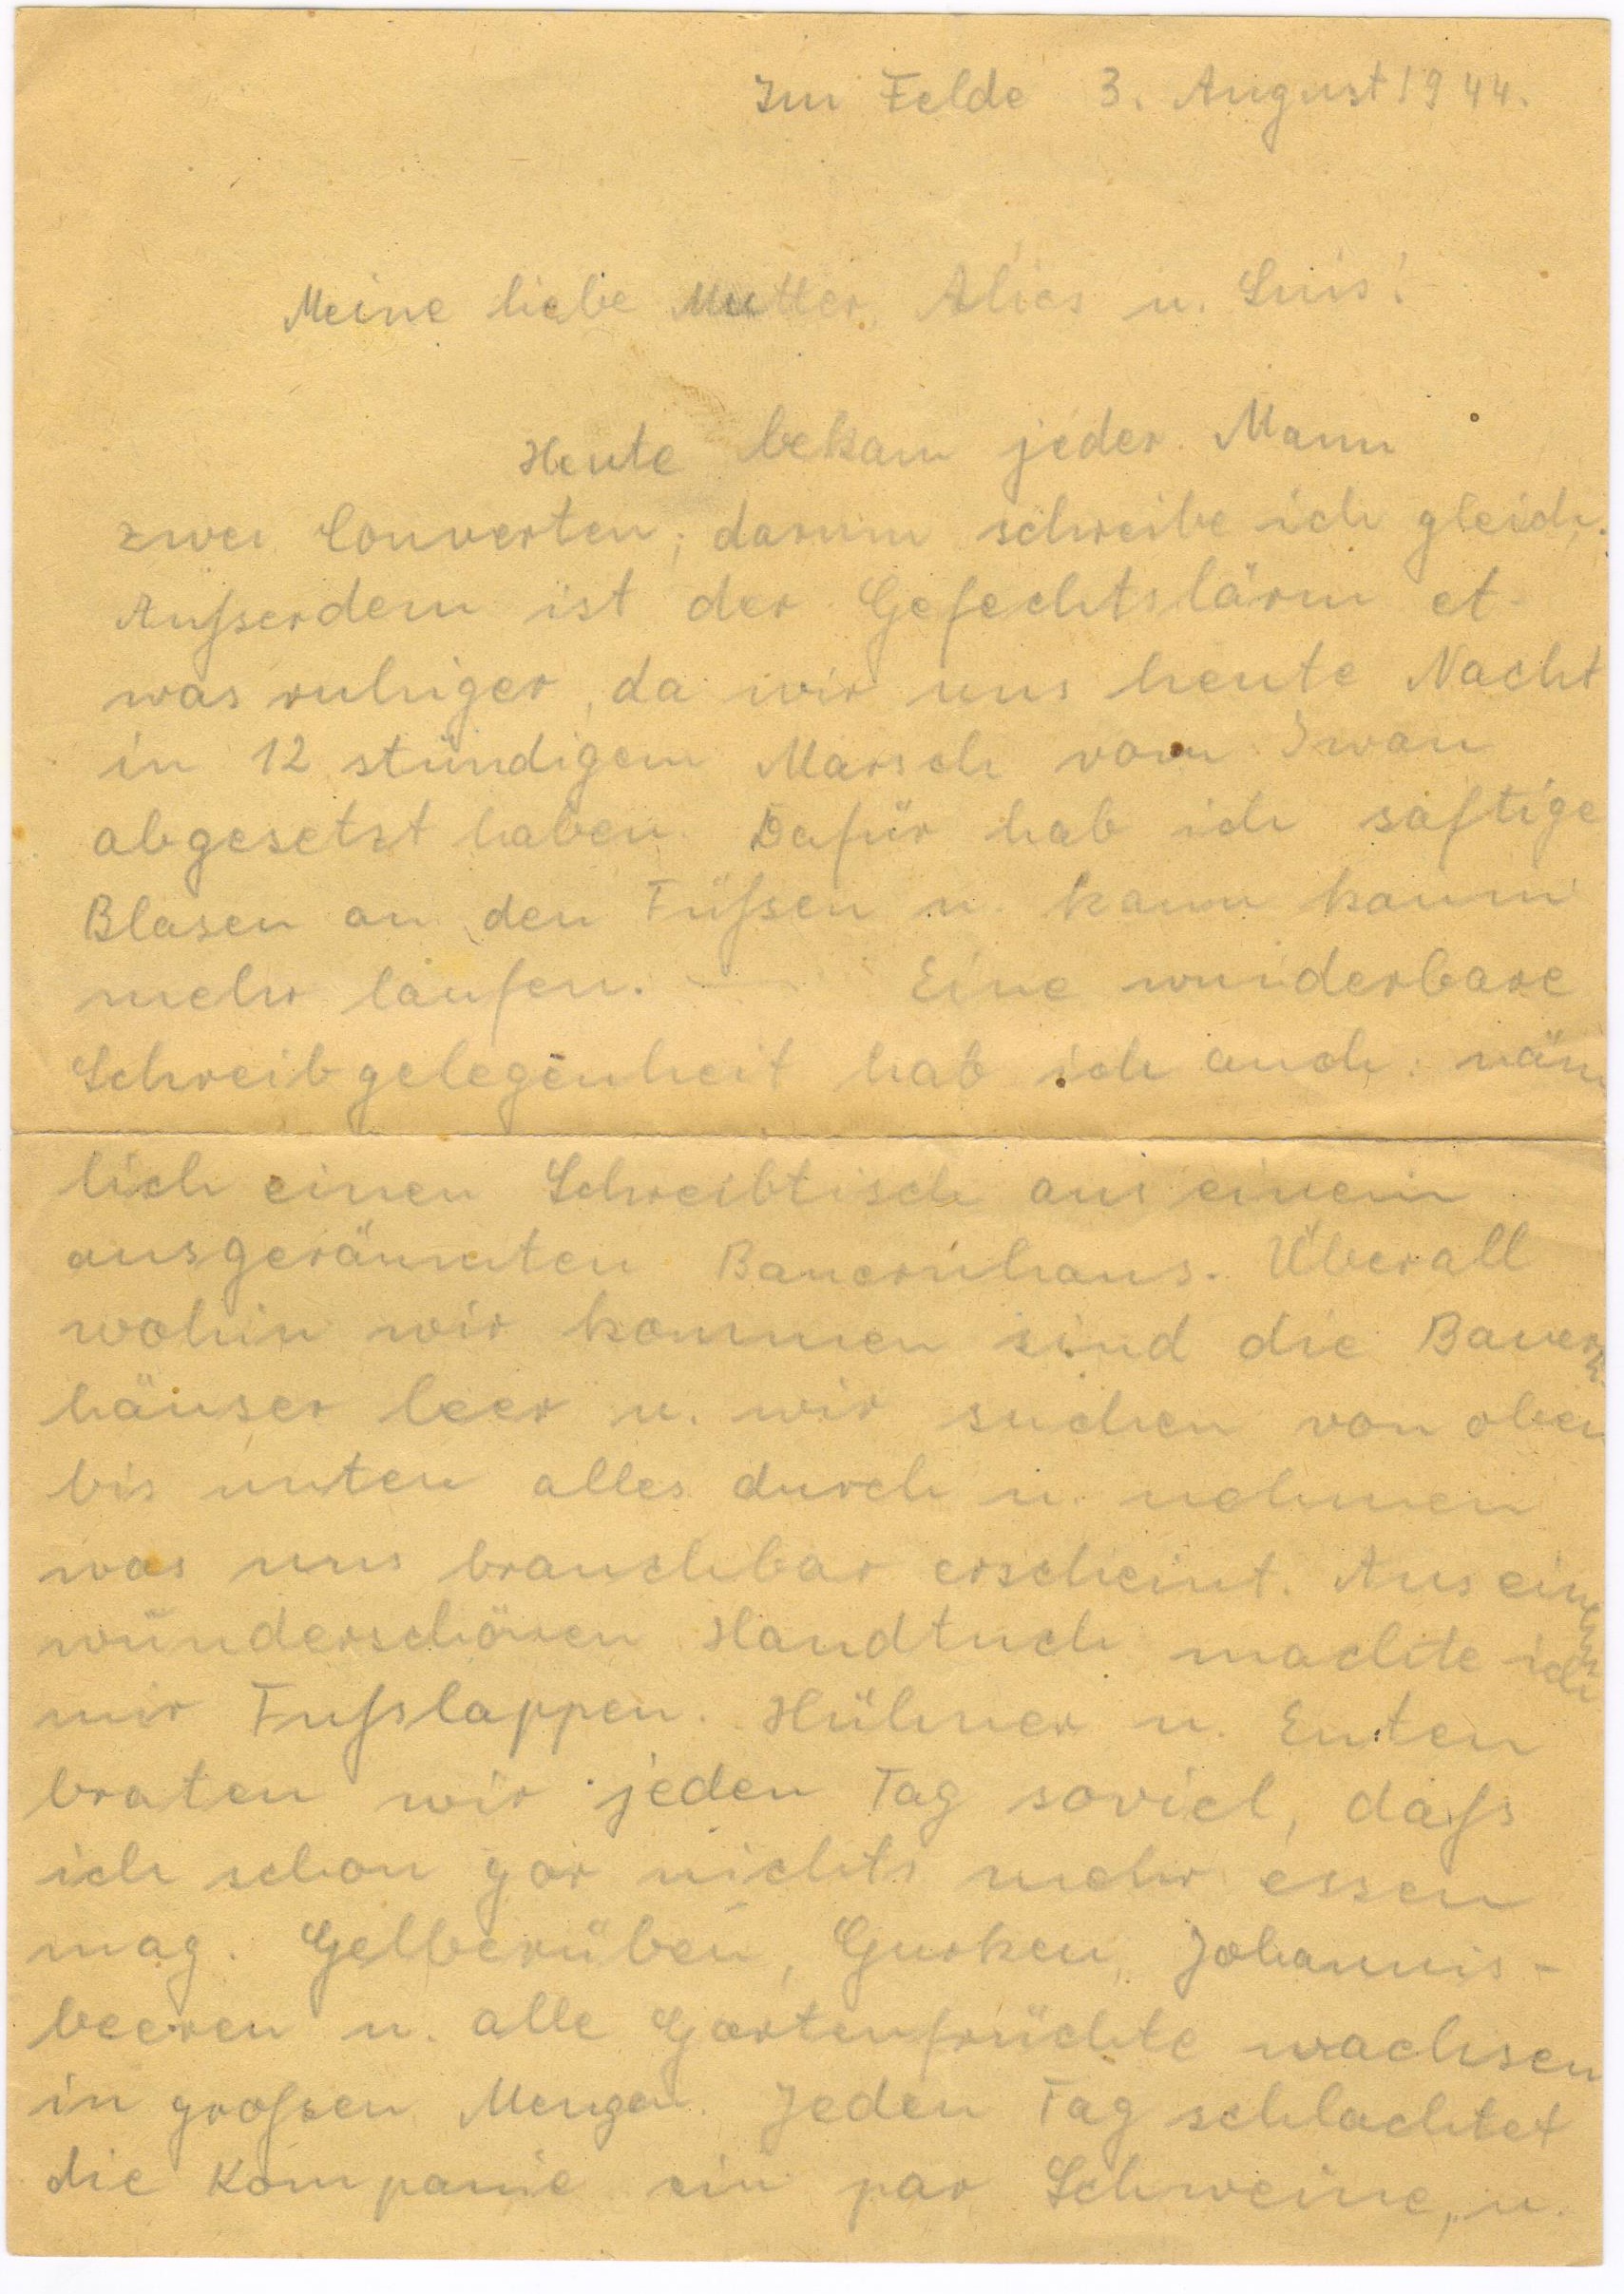 Im Felde 3. August 1944.
Meine liebe Mutter, Alies u. Luis!
Heute bekam jeder Mann
zwei Couverten; darum schreibe ich gleich.
Außerdem ist der Gefechtslärm et-
was ruhiger, da wir uns heute Nacht
in 12 stündigem Marsch vom Iwan
abgesetzt haben. Dafür hab ich saftige
Blasen an den Füßen u. kann kaum
mehr laufen. — Eine wunderbare
Schreibgelegenheit hab ich auch: näm
lich einen Schreibtisch aus einem
ausgeräumten Bauernhaus. Überall
wohin wir kommen sind die Bauern
häuser leer u. wir suchen von oben
bis unten alles durch u. nehmen
was uns brauchbar erscheint. Aus einem
wunderschönen Handtuch machte ich
mir Fußlappen. Hühner u. Enten
braten wir jeden Tag soviel, daß
ich schon gar nichts mehr essen
mag. Gelberüben, Gurken, Johannis-
beeren u. alle Gartenfrüchte wachsen
in großen Mengen. Jeden Tag schlachtet
die Kompanie ein par Schweine, u.